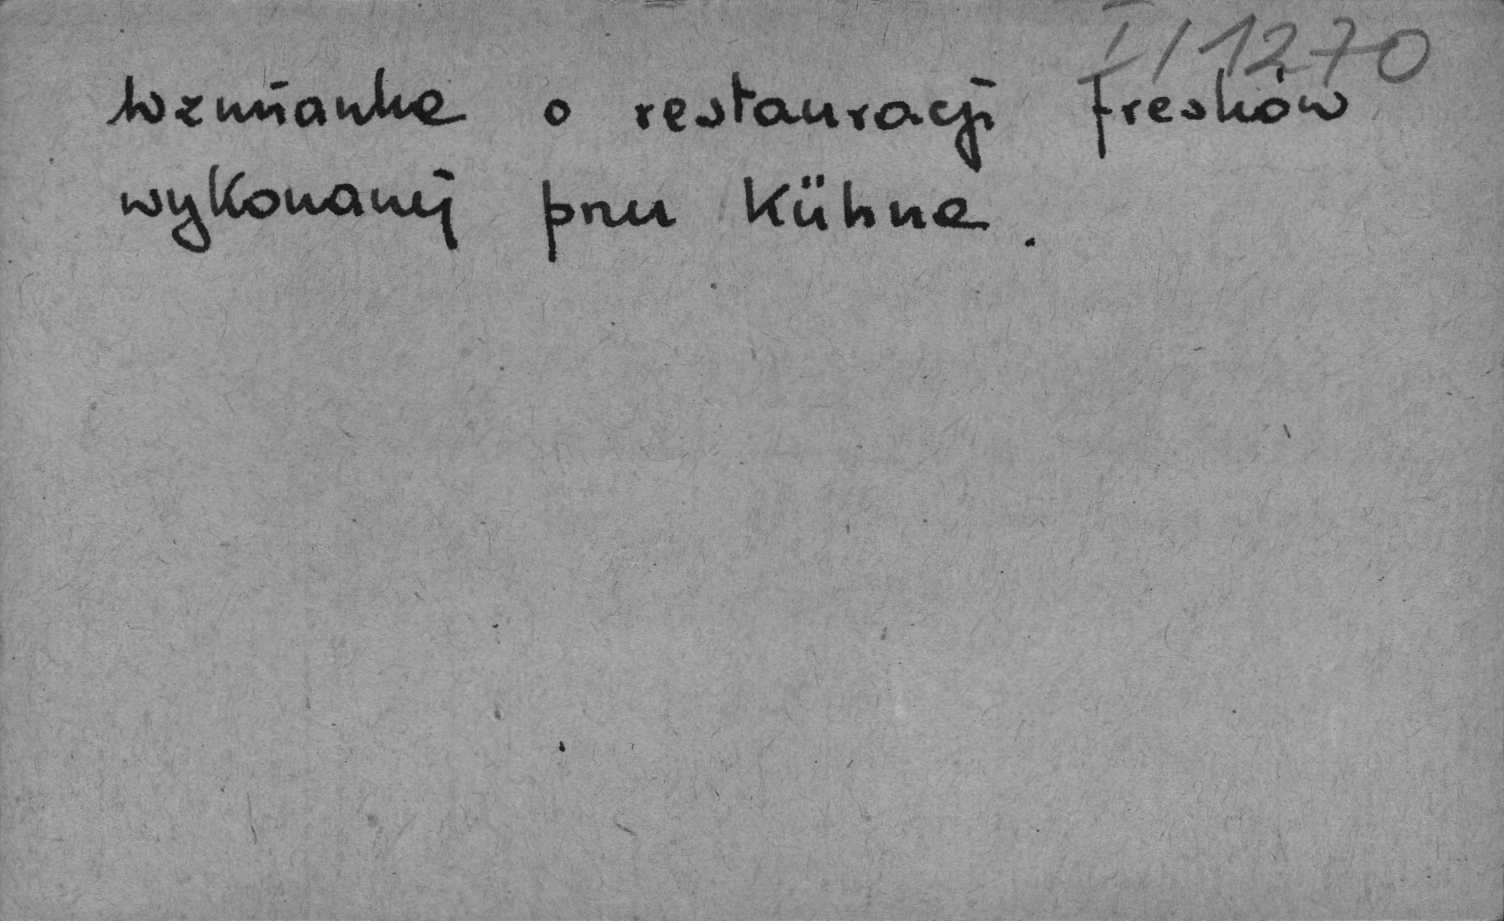 I/1270
Wzmianka o restauracji fresków
wykonanej przez Kühna.